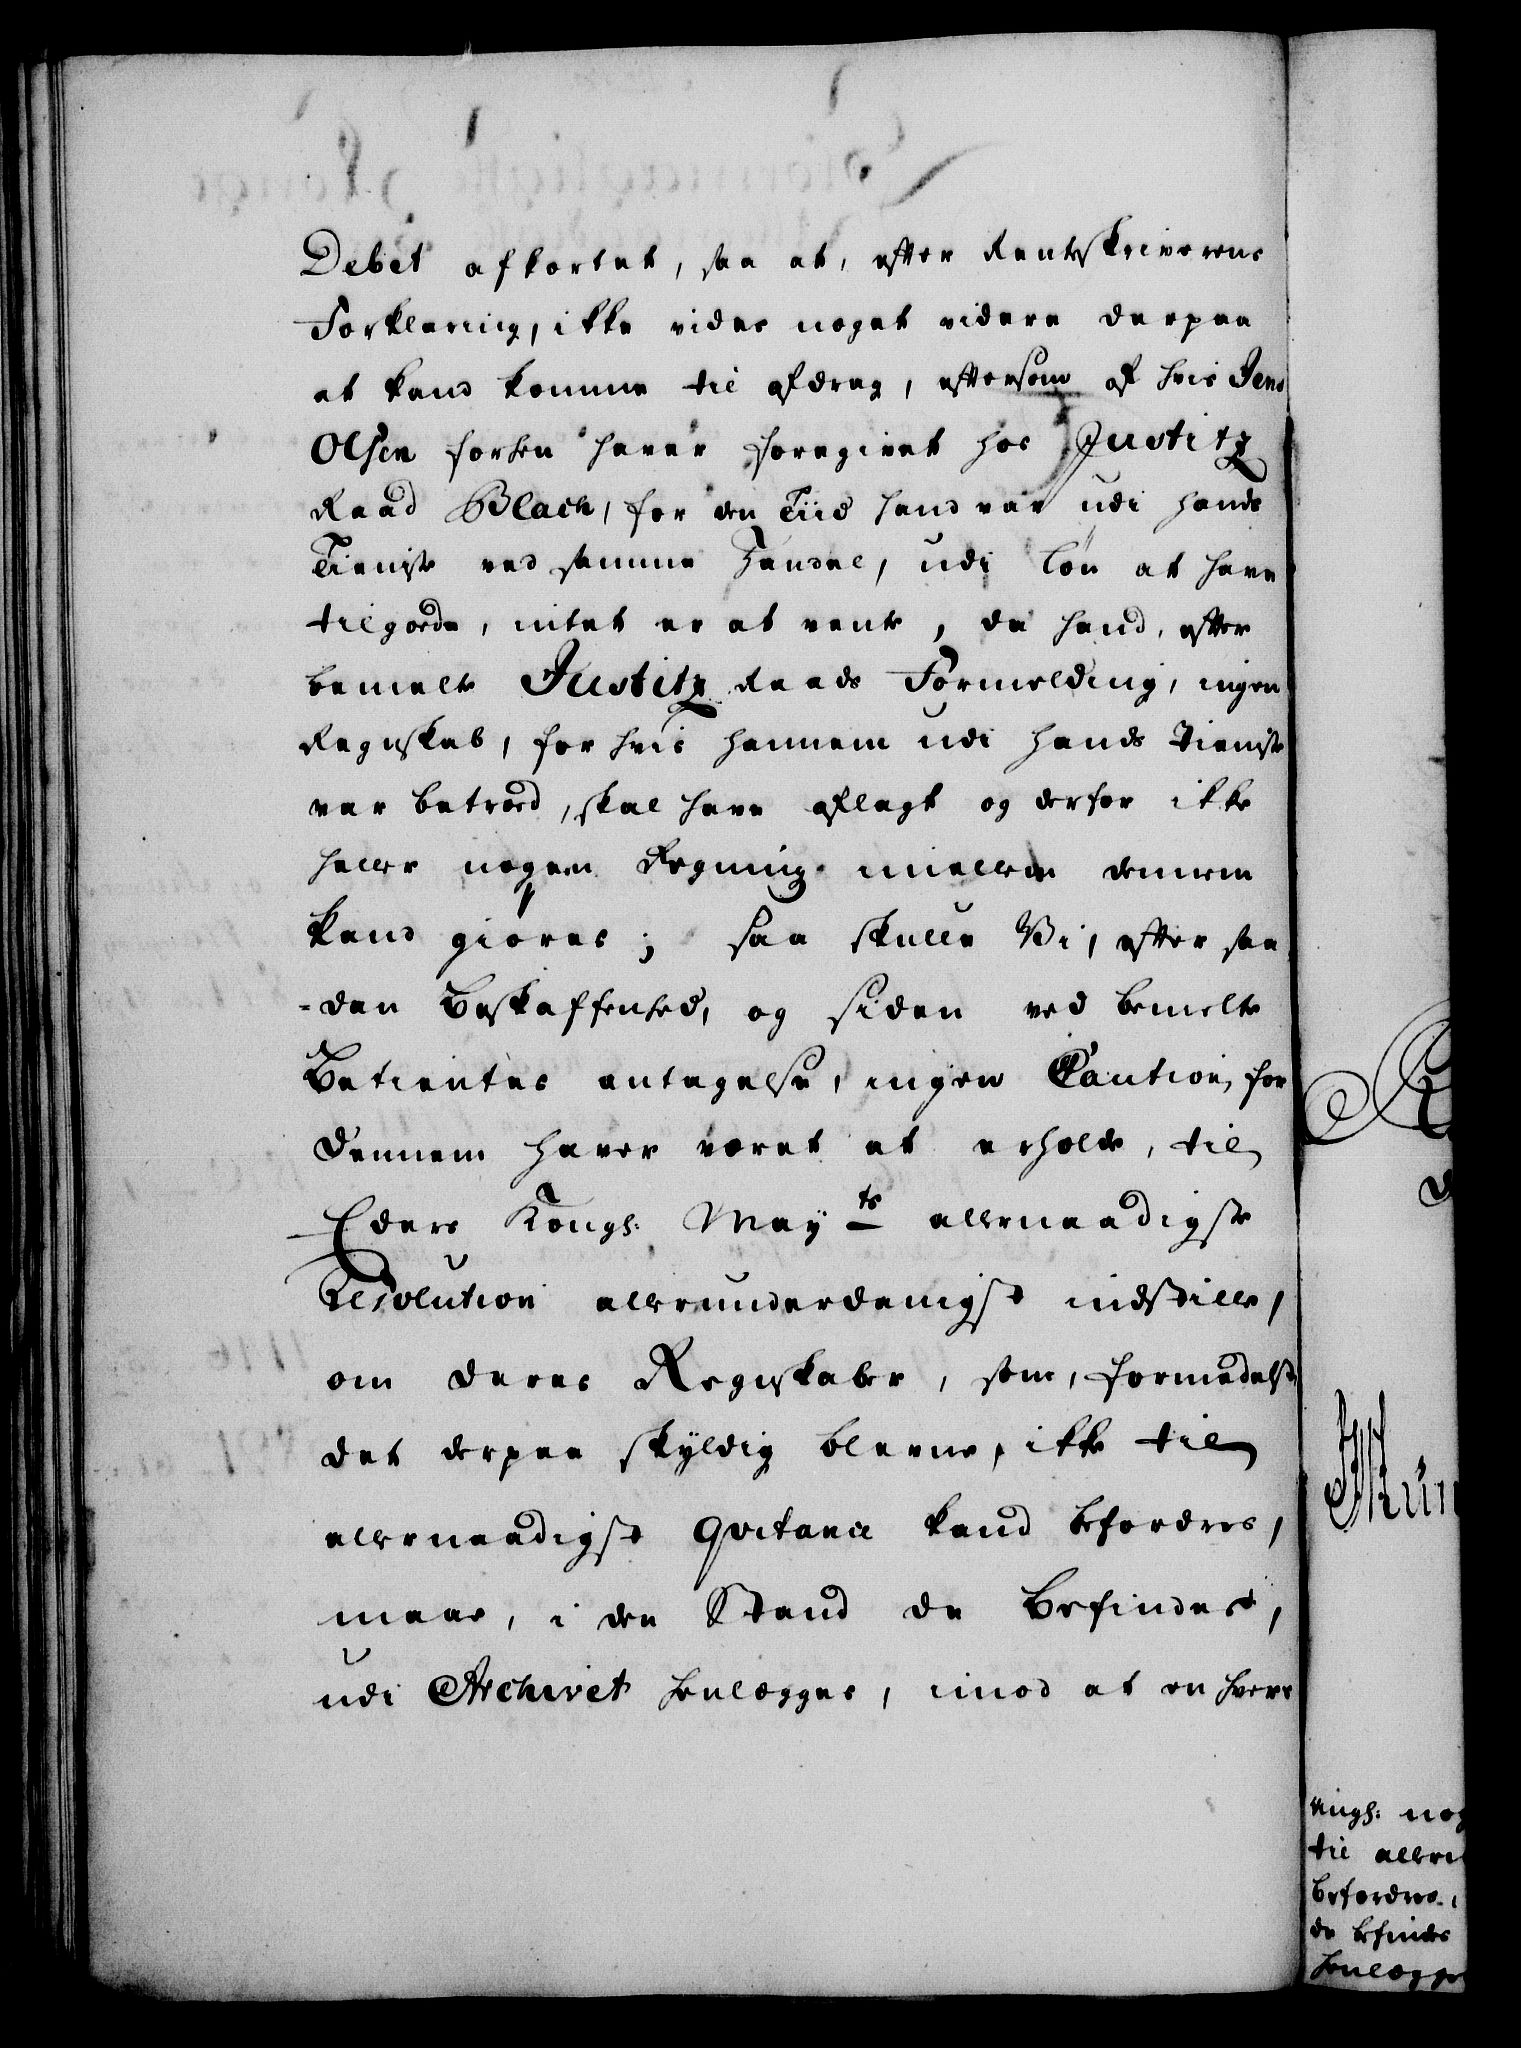 Debet afkortet, saa at, efter Rentskriverens
Forklaring, ikke vides noget videre derpaa
at kand komme til afdrag, eftersom af hvis Jens
Olsen forhen haver foregivet hos Justitz
Raad Blach, for den Tiid hand var udi hands
Tieniste ved samme Handel, udi Løn at have
tilgode, intet er at vente, da hand, efter
bemelte Justitz Raads Formelding, ingen
Regnskab, for hvis hannem udi hands Tieniste
var betroed, skal have aflagt og derfor ikke
heller nogen Regning imellem dennem
kand giøres; saa skulle Vi, efter saa
-dan Beskaffenhed, og siden ved bemelte
Betientes antagelse, ingen Caution for
dennem haver været at erholde, til
Eders Kongl: Mayts allernaadigste
Resolution allerunderdanigst indstille,
om deres Regnskaber, som, formedelst
det derpaa skyldig bleevne, ikke til
allernaadigst Qvitance kand befordres,
maae, i den Stand de befindes,
udi Archivet henlægges, imod at en hver
nog
til aller
befordres,
de befindes
henlægge